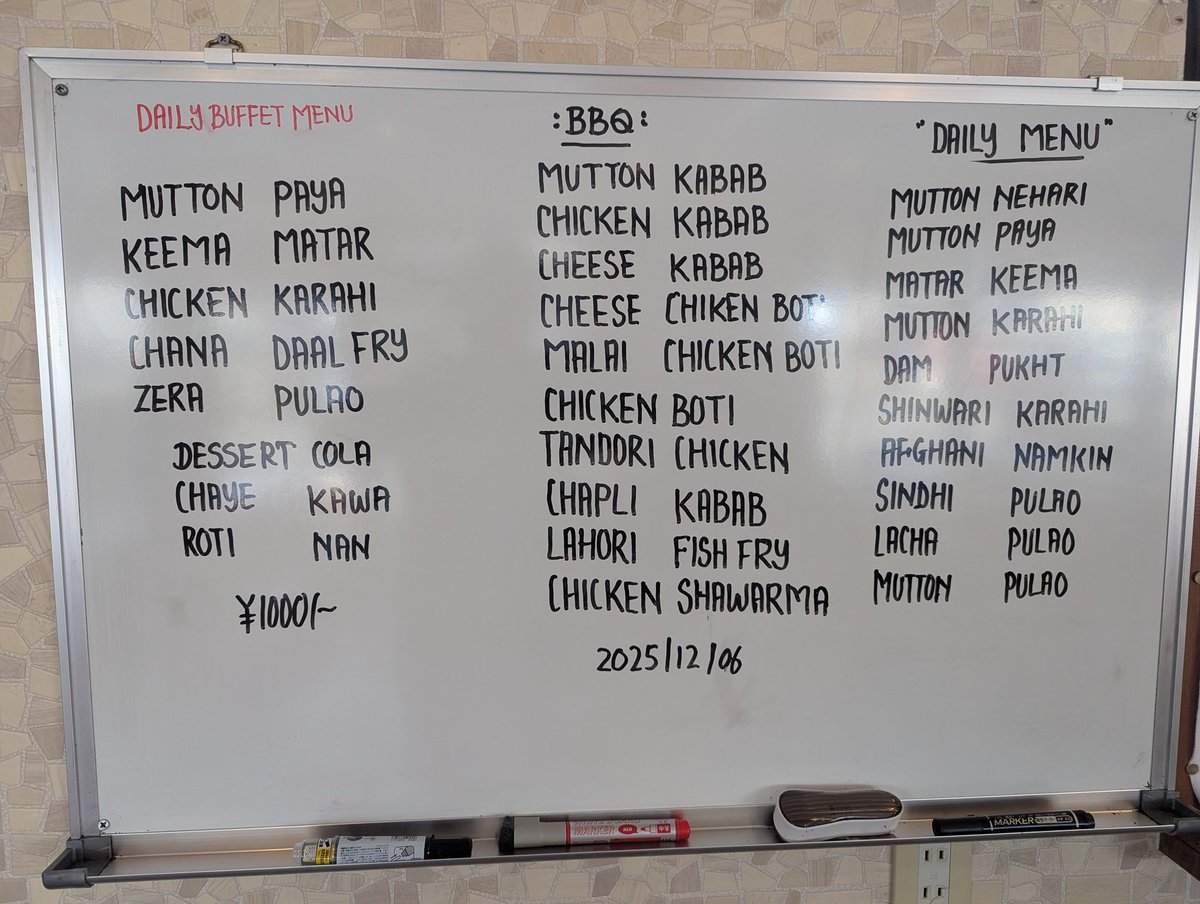 DAILY BUFFET MENU
MUTTON PAYA
KEEMA MATAR
CHICKEN KARAHI
CHANA DAAL FRY
ZERA PULAO
DESSERT COLA
CHAYE KAWA
ROTI NAN
¥1000/~
:BBQ:
MUTTON KABAB
CHICKEN KABAB
CHEESE KABAB
CHEESE CHIKEN BOTI
MALAI CHICKEN BOTI
CHICKEN BOTI
TANDORI CHICKEN
CHAPLI KABAB
LAHORI FISH FRY
CHICKEN SHAWARMA
2025/12/06
"DAILY MENU"
MUTTON NEHARI
MUTTON PAYA
MATAR KEEMA
MUTTON KARAHI
DAM PUKHT
SHINWARI KARAHI
AFGHANI NAMKIN
SINDHI PULAO
LACHA PULAO
MUTTON PULAO
MARKER
MARKER